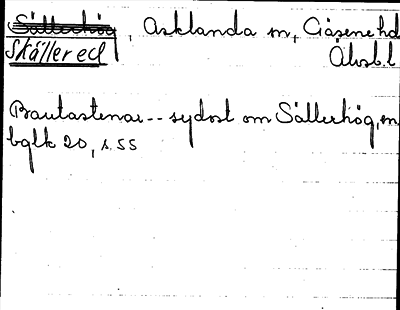 Sällerhög, Asklanda sn, Gäsene hd
Skällered Älvsb.l
Bautastenar -- sydost om Sällerhög, sn
bglk 20, s. 55